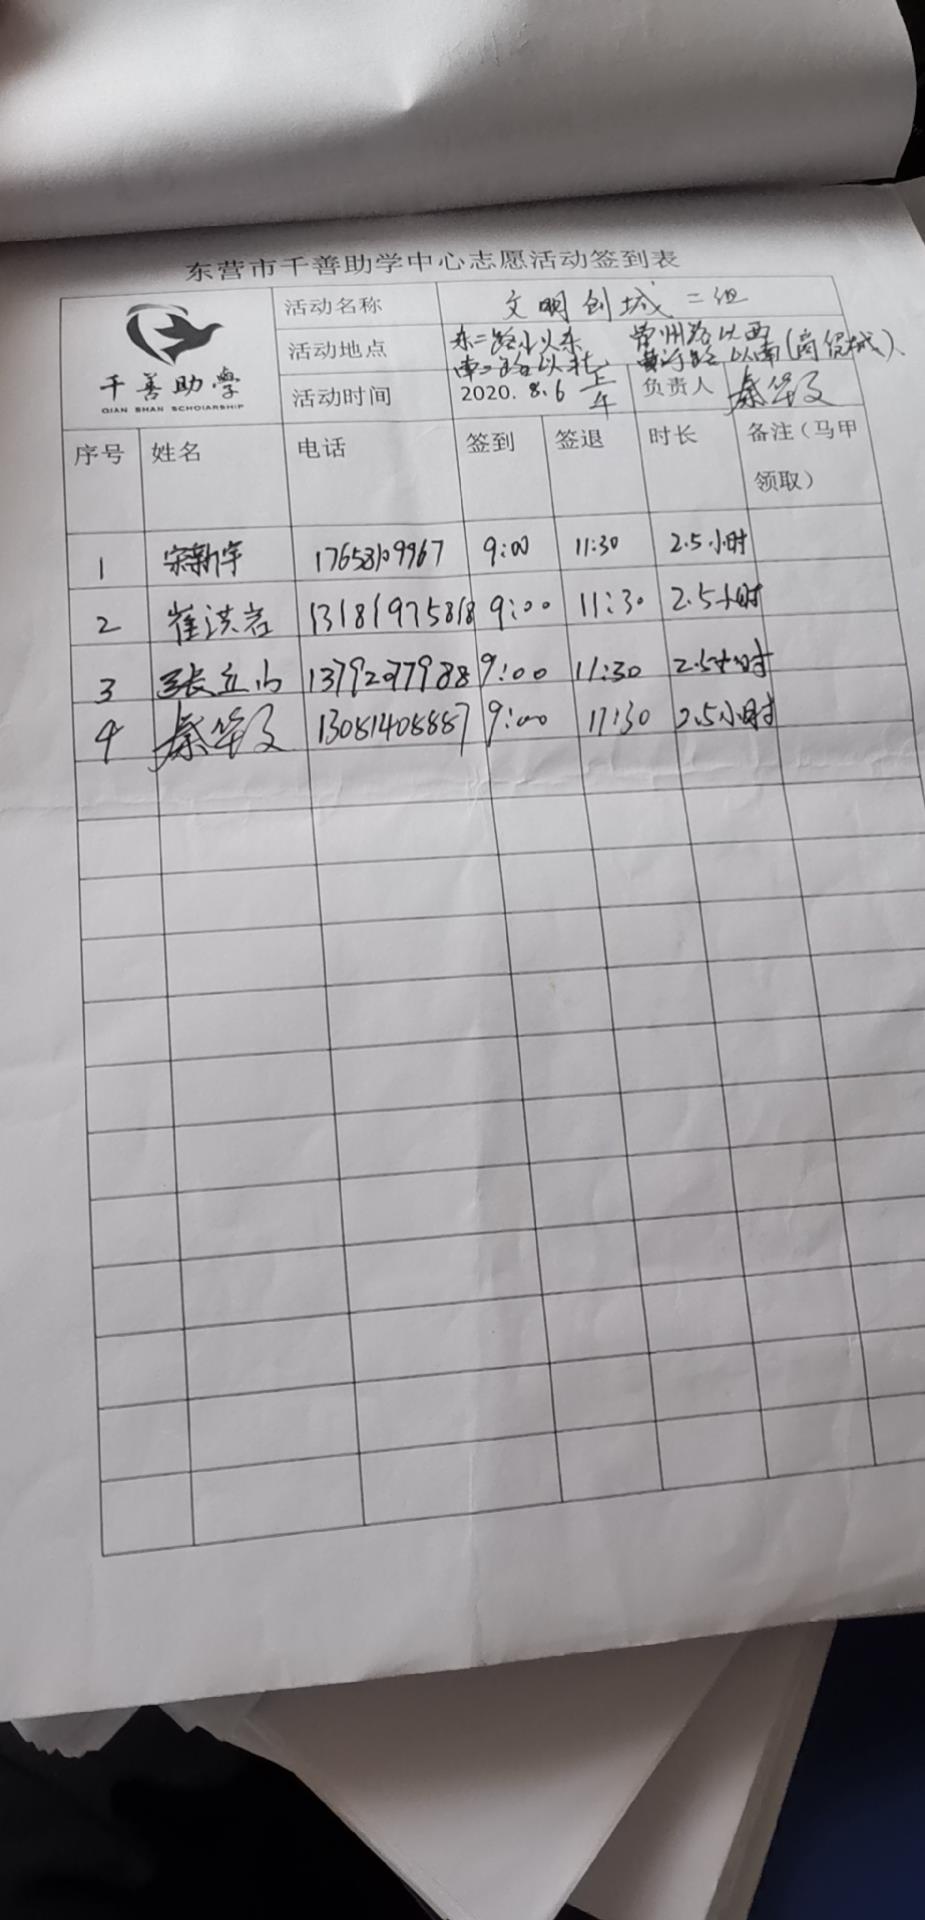 东营市千善助学中心志愿活动签到表
千善助學
QIAN SHAN SCHOLARSHIP
活动名称 文明创城 二组
活动地点 东二路以东 常州路以西
南二路以北 黄河路以南(商贸城)
活动时间 2020. 8.6 上午 负责人 秦华文
序号 姓名 电话 签到 签退 时长 备注(马甲领取)
1 宋新宇 17658109967 9:00 11:30 2.5小时
2 崔洪岩 13181975818 9:00 11:30 2.5小时
3 张立山 13792077988 9:00 11:30 2.5小时
4 秦华文 13081408887 9:00 11:30 2.5小时